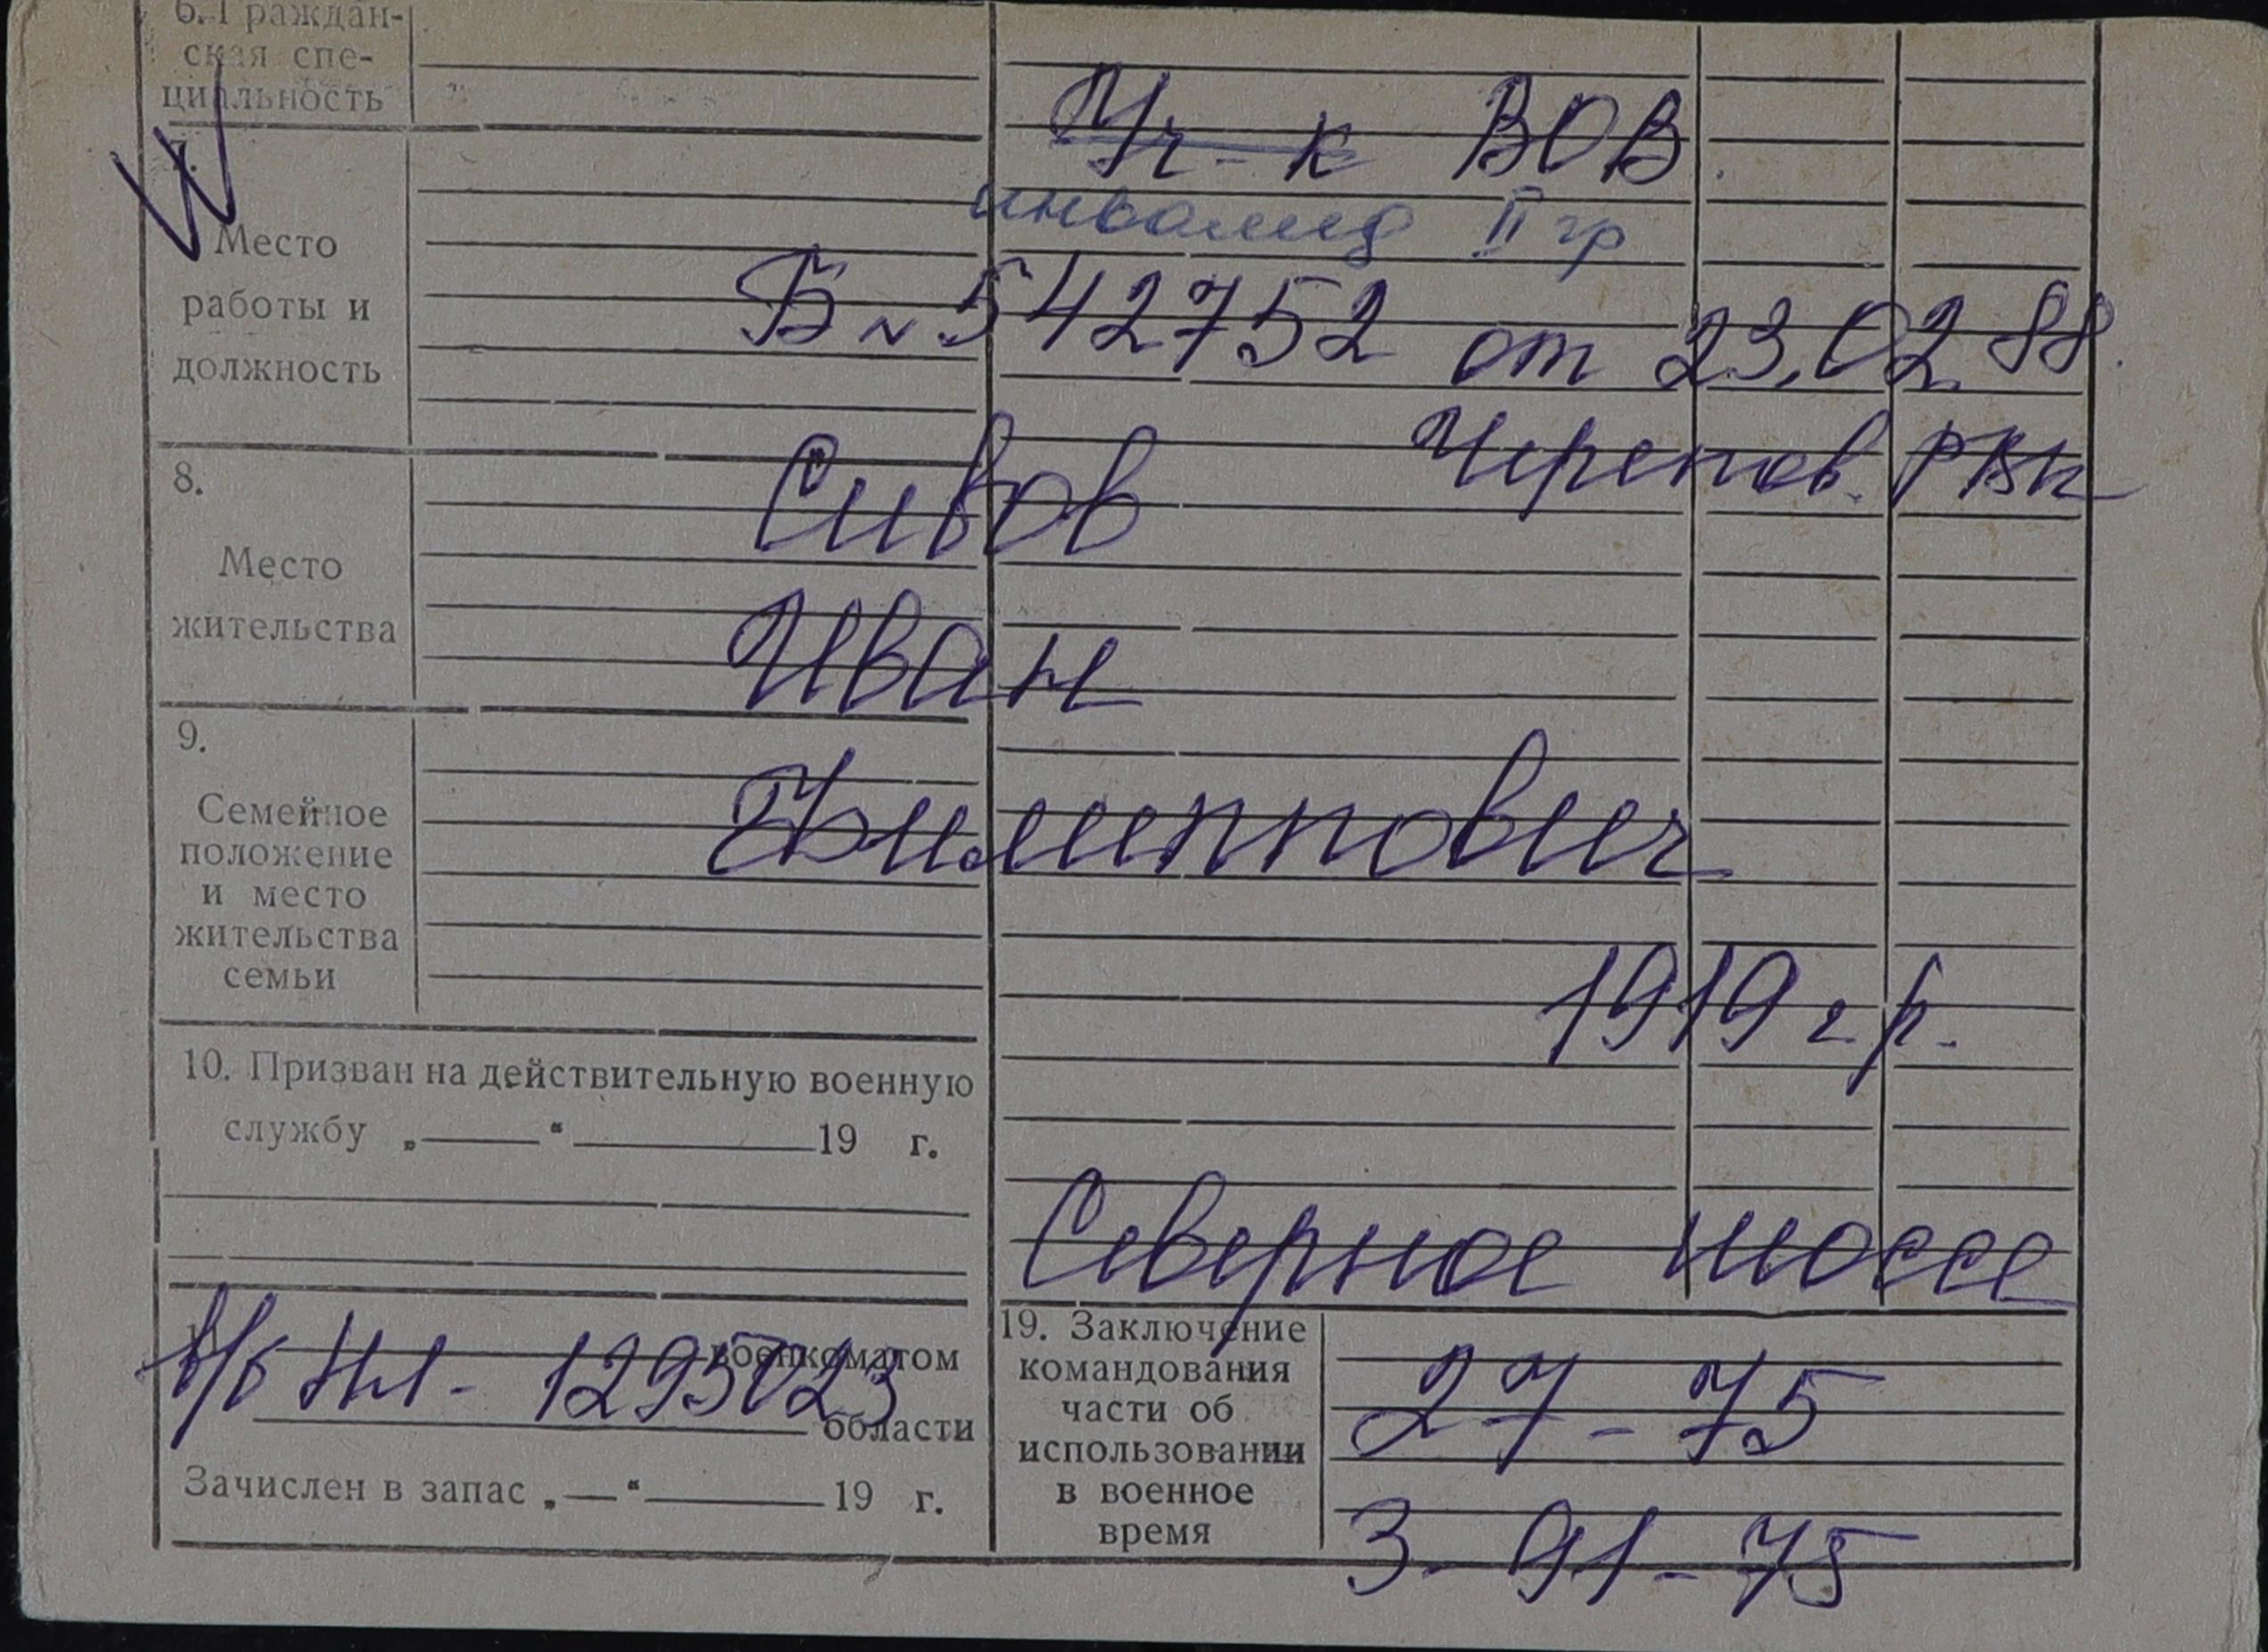 6. Граждан-
ская спе-
циальность
Уч-к ВОВ.
инвалид II гр
Место
работы и
должность
Б № 542752 от 23.02.88.
Черепов. РВК
8.
Место
жительства
Сивов
Иван
9.
Семейное
положение
и место
жительства
семьи
Филиппович
1919 г.р.
10. Призван на действительную военную
службу „ “ 19 г.
Северное шоссе
военкоматом
в/б НЛ- 1295023
области
Зачислен в запас „ “ 19 г.
19. Заключение
командования
части об
использовании
в военное
время
27-75
3-91-75